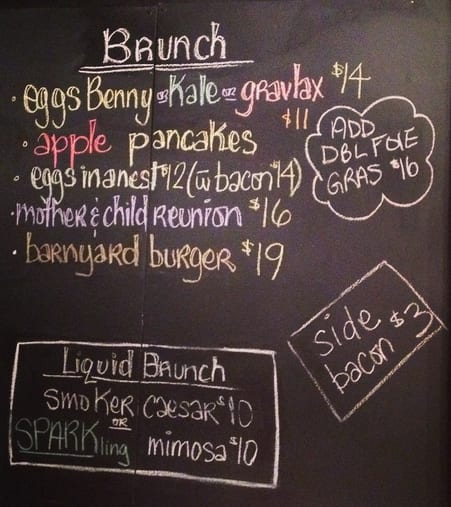 BRUNCH
• eggs Benny or Kale or gravlax $14
$11
• apple pancakes
• eggs in a nest $12 (w bacon $14)
• mother & child REUNION $16
• barnyard burger $19
ADD
DBL FOIE
GRAS $16
side
bacon $3
Liquid BRUNCH
SMOKER CAESAR $10
OR
SPARKling mimosa $10